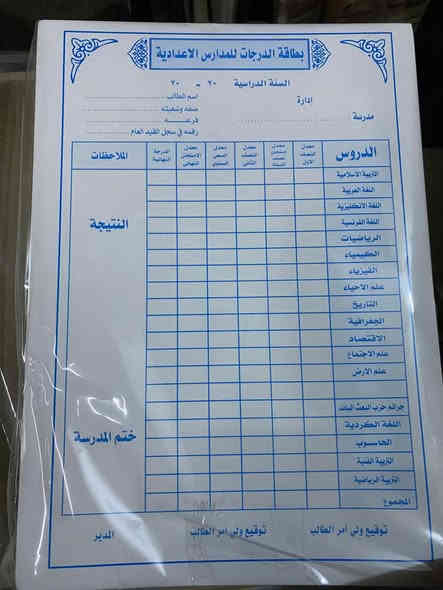 بطاقة الدرجات للمدارس الاعدادية
السنة الدراسية ٢٠ - ٢٠
ادارة
مدرسة
اسم الطالب
صفه وشعبته
فرعــــه
رقمه في سجل القيد العام
الدروس
معدل النصف الاول
معدل امتحان نصف السنة
معدل النصف الثاني
معدل السعي السنوي
معدل الامتحان النهائي
الدرجة النهائية
الملاحظات
التربية الاسلامية
اللغة العربية
اللغة الانكليزية
اللغة الفرنسية
الرياضيات
الكيمياء
الفيزياء
علم الاحياء
التاريخ
الجغرافية
الاقتصاد
علم الاجتماع
علم الارض
جرائم حزب البعث البائد
اللغة الكردية
الحاسوب
التربية الفنية
التربية الرياضية
المجموع
النتيجة
ختم المدرسة
توقيع ولي امر الطالب
توقيع ولي امر الطالب
المدير